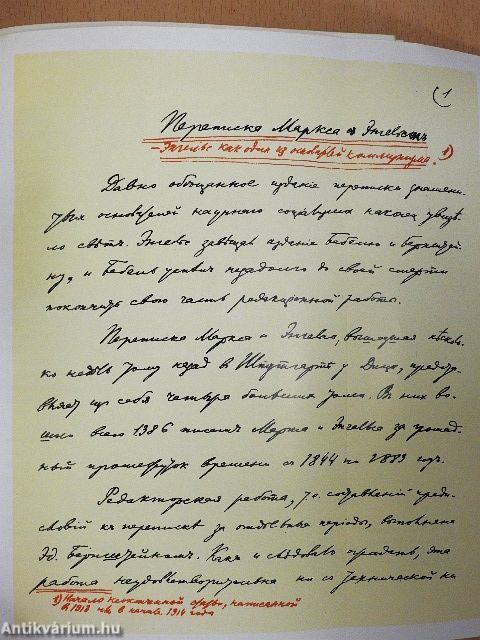 (1
Переписка Маркса с Энгельсомъ
— Энгельс как один из основателей коммунизма. 1)
Давно обѣщанное изданіе переписки знамени-
тыхъ основателей научнаго соціализма наконецъ увидѣ-
ло свѣтъ. Энгельс завѣщалъ изданіе Бебелю и Бернштей-
ну, и Бебель успѣлъ незадолго до своей смерти
покончить свою часть редакціонной работы.
Переписка Маркса и Энгельса, вышедшая нѣсколь-
ко недѣль тому назад в Штутгартѣ у Дица, предста-
вляет из себя четыре большихъ тома. В них во-
шло всего 1386 писемъ Маркса и Энгельса за громад-
ный промежуток времени съ 1844 по 1883 годъ.
Редакторская работа, т.е. составленіе преди-
словій къ перепискѣ за отдѣльные періоды, выполнена
Эд. Бернштейномъ. Какъ и слѣдовало ожидать, эта
работа неудовлетворительна ни съ технической ни
1) Начало неоконченной статьи, написанной
в 1913 или в начале 1914 года
Antikvárium.hu